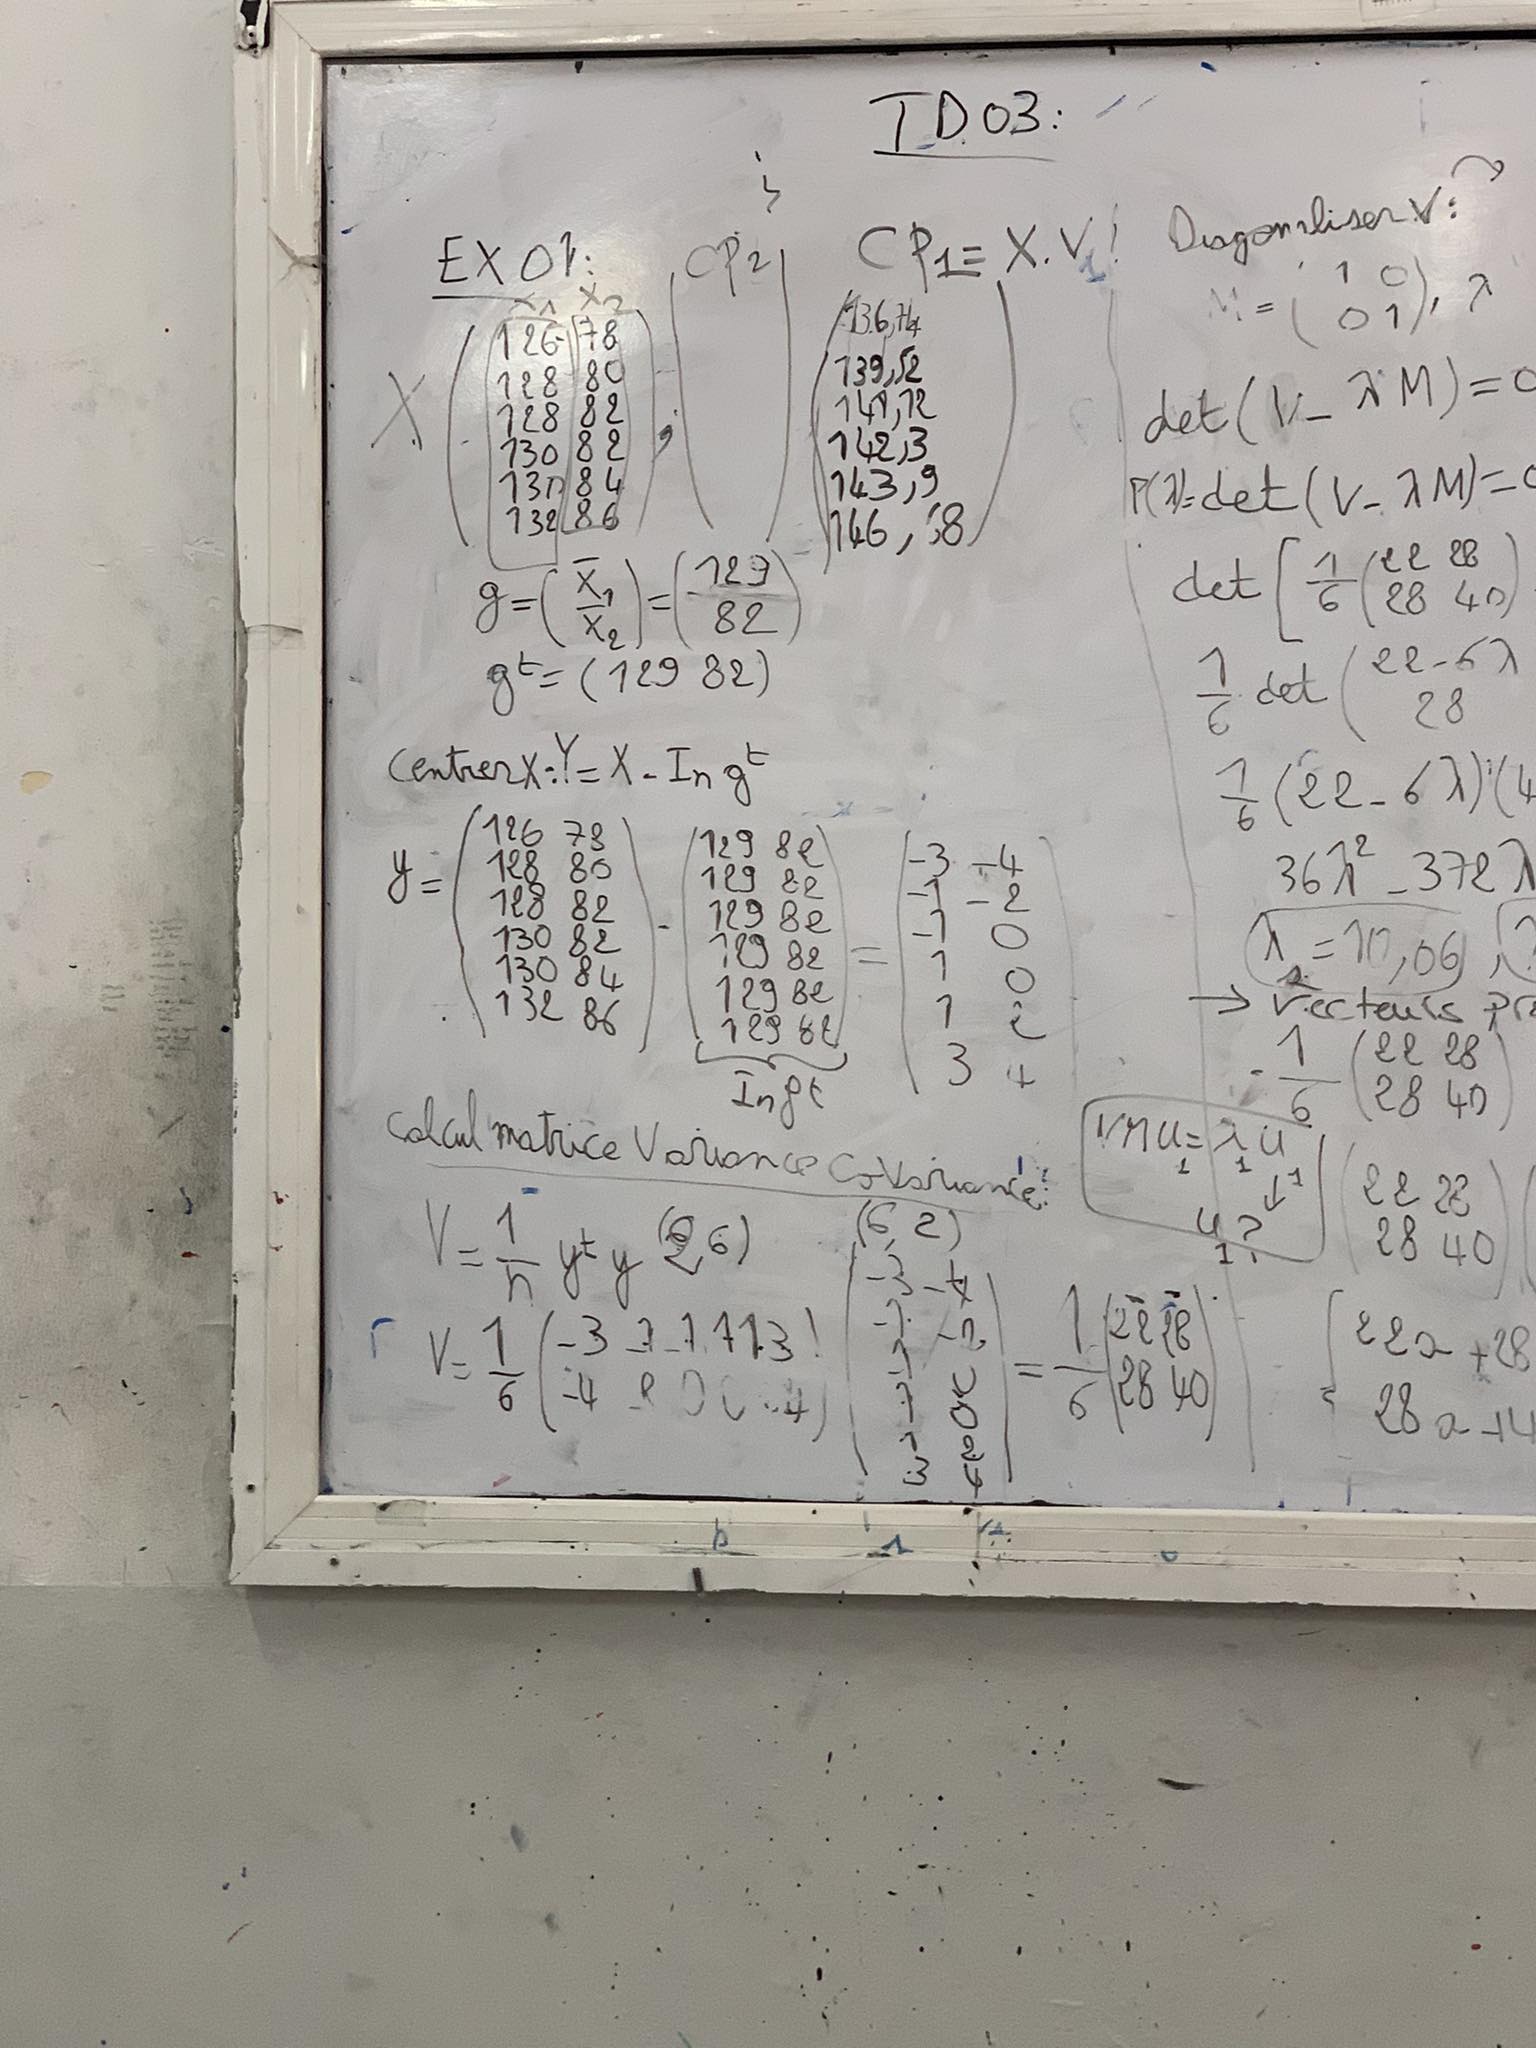 TD 03:
EX 01:
X1 X2
X
126 78
128 80
128 82
130 82
130 84
132 86
,
CP2
CP1 = X.V1
136,74
139,52
141,12
142,3
143,9
146,68
g = (X̄1 X̄2) = (129 82)
gᵗ = (129 82)
Centrer X : Y = X - In gᵗ
y =
126 78
128 80
128 82
130 82
130 84
132 86
-
129 82
129 82
129 82
129 82
129 82
129 82
In gᵗ
=
-3 -4
-1 -2
-1 0
1 0
1 2
3 4
Calcul matrice Variance Covariance:
V = 1/n yᵗ y (2,6) (6,2)
V = 1/6
-3 -1 -1 1 1 3
-4
= 1/6
22 28
28 40
Diagonaliser V:
M = (1 0
0 1), λ
det(V - λM) = 0
P(λ) = det(V - λM) = 0
det [1/6 (22 28
28 40)
1/6 det (22 - 6λ
28
1/6 (22 - 6λ)(4
36λ² - 372λ
λ1 = 10,06 ,
→ Vecteurs pr
1/6 (22 28
28 40)
VMU1 = λ1 U1
↓
U1 ?
(22 28
28 40)
22x + 28
28x + 4